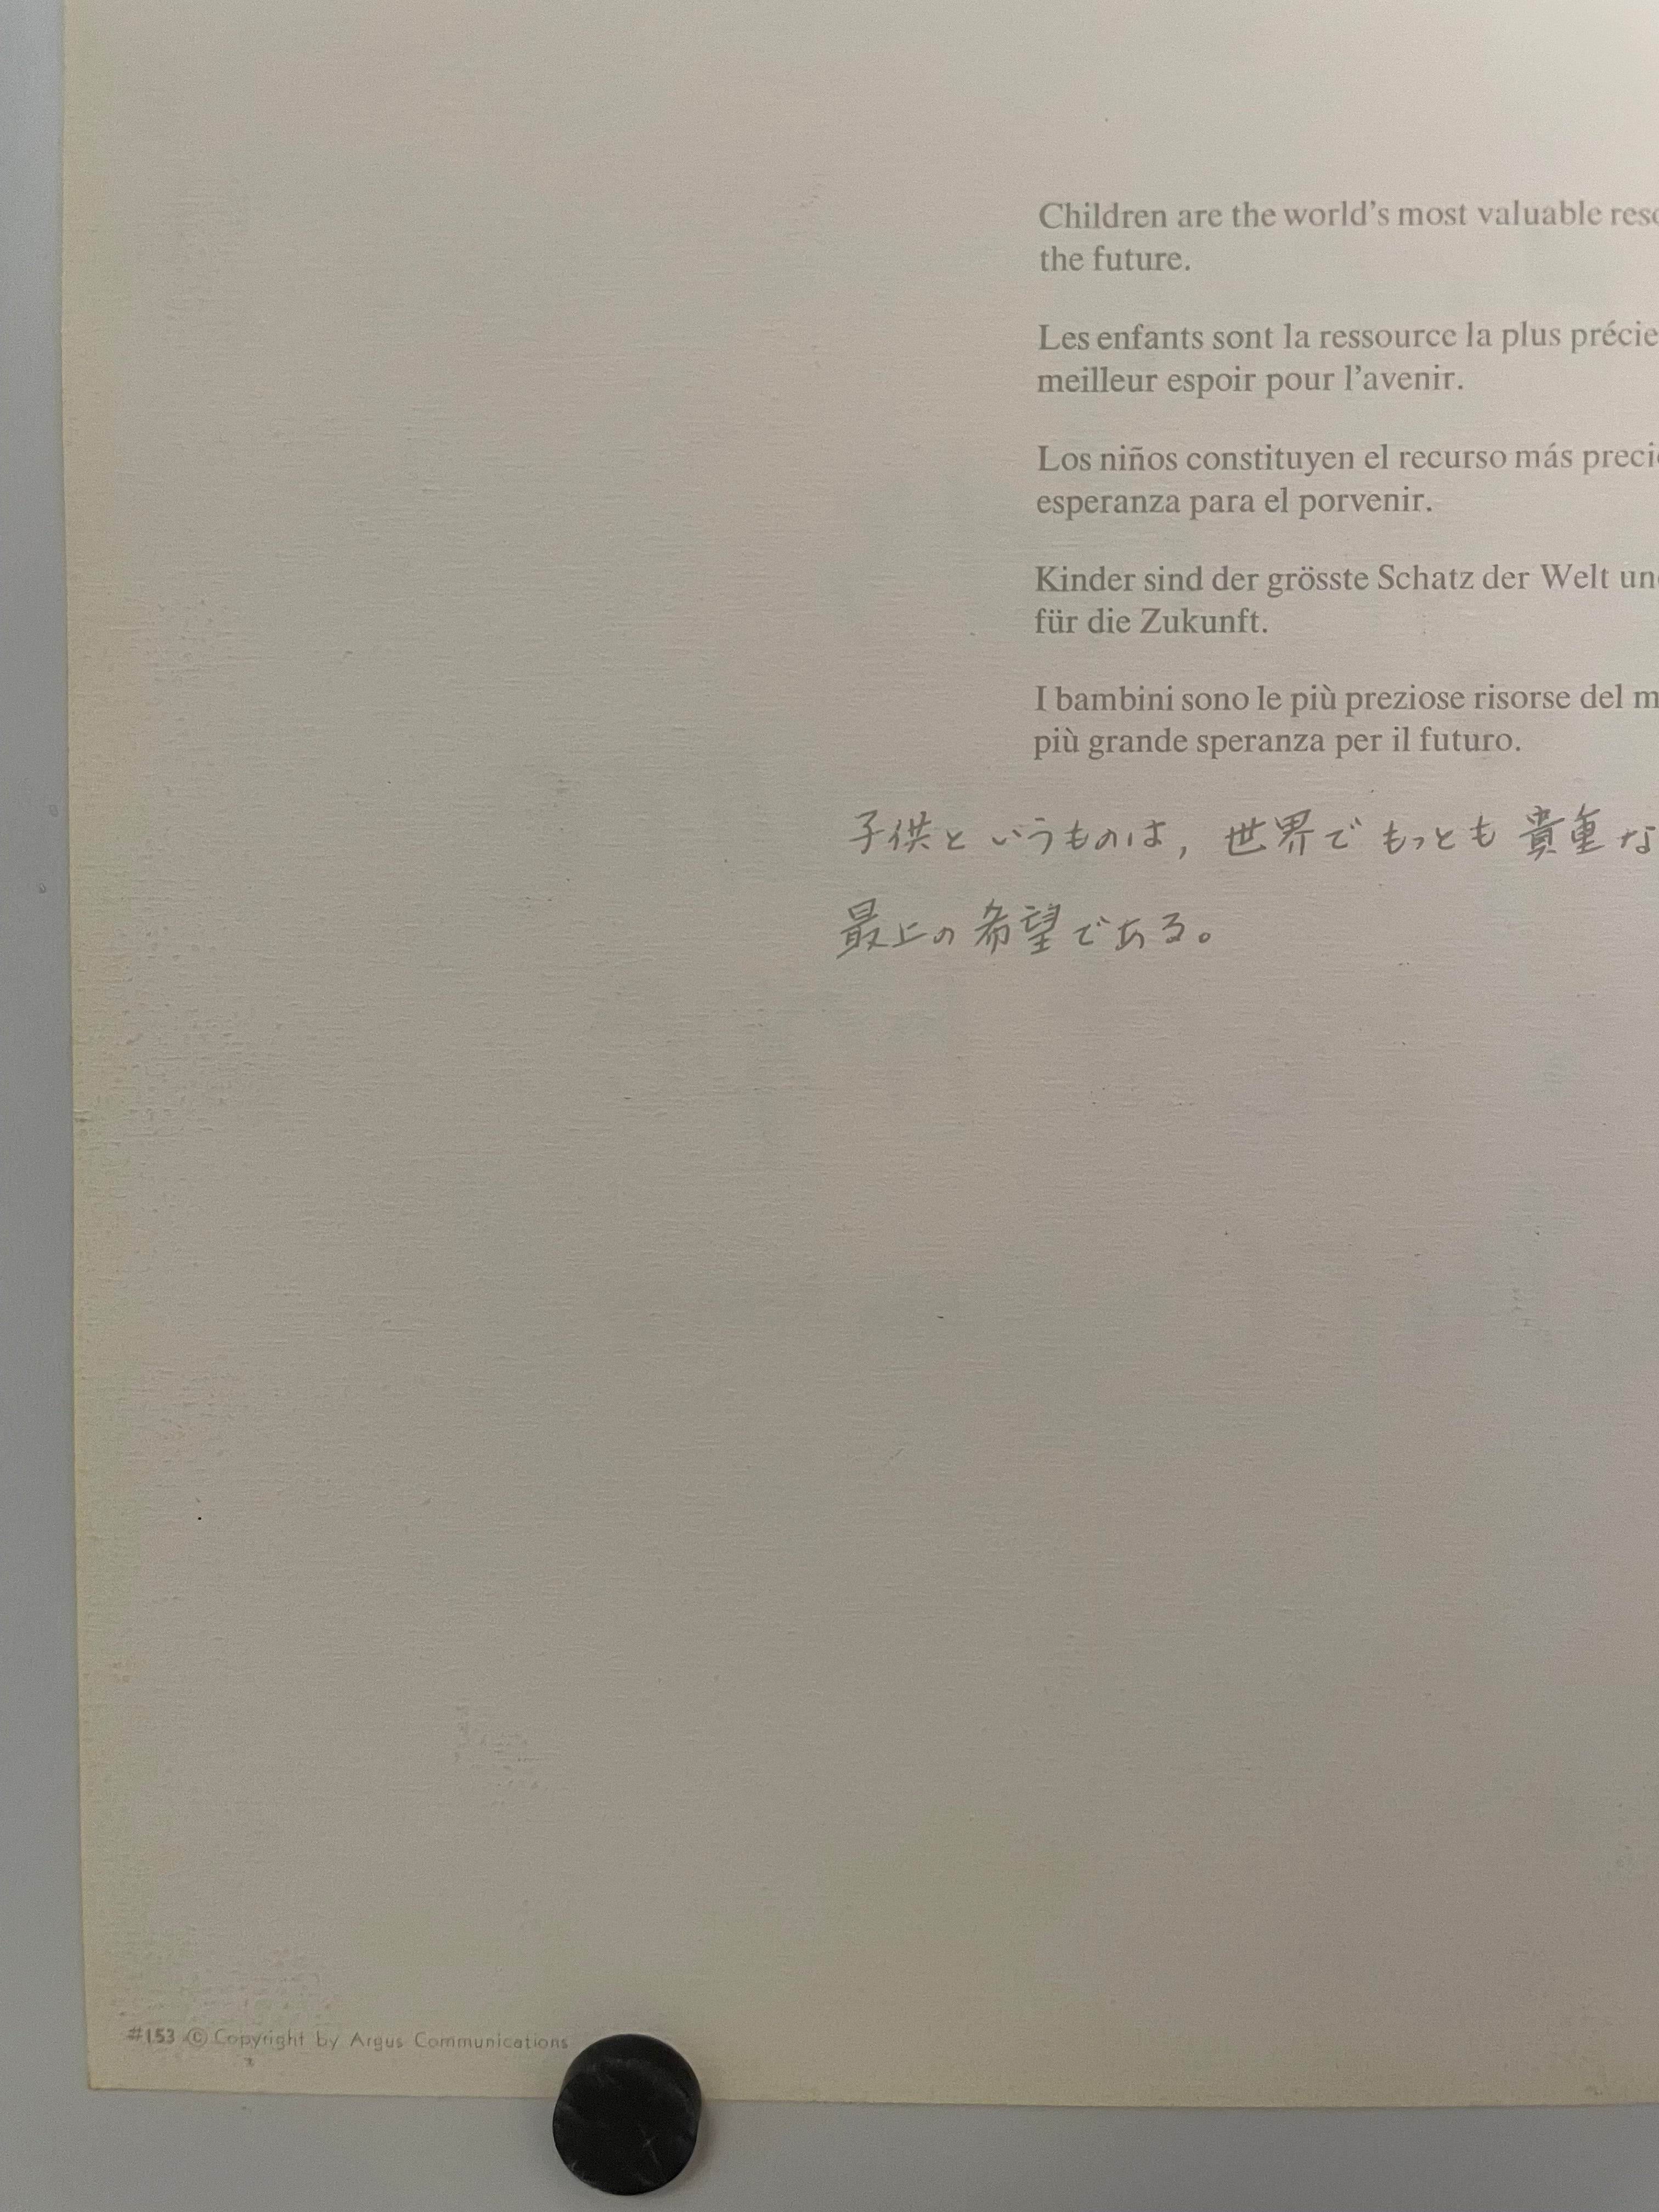 Children are the world's most valuable
the future.
Les enfants sont la ressource la plus
meilleur espoir pour l'avenir.
Los niños constituyen el recurso más
esperanza para el porvenir.
Kinder sind der grösste Schatz der Welt
für die Zukunft.
I bambini sono le più preziose risorse del
più grande speranza per il futuro.
子供というものは, 世界でもっとも貴重な
最上の希望である。
#153 © Copyright by Argus Communications